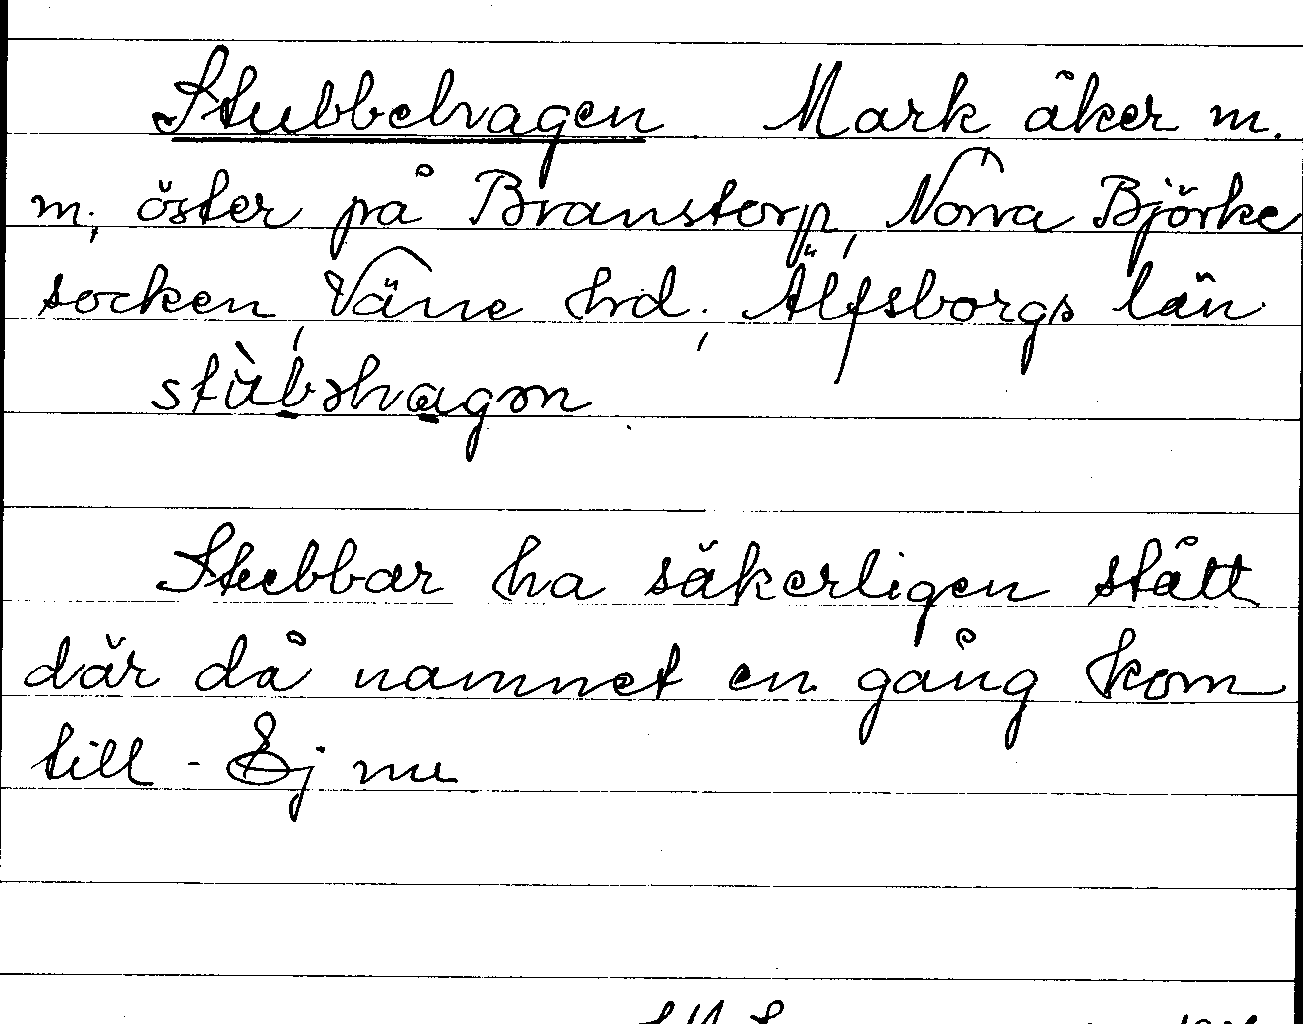 Stubbehagen Mark åker m.
m; öster på Branstorp, Norra Björke
socken, Väne hrd; Älfsborgs län
stùbəhagən
Stubbar ha säkerligen stått
där då namnet en gång kom
till - Ej nu